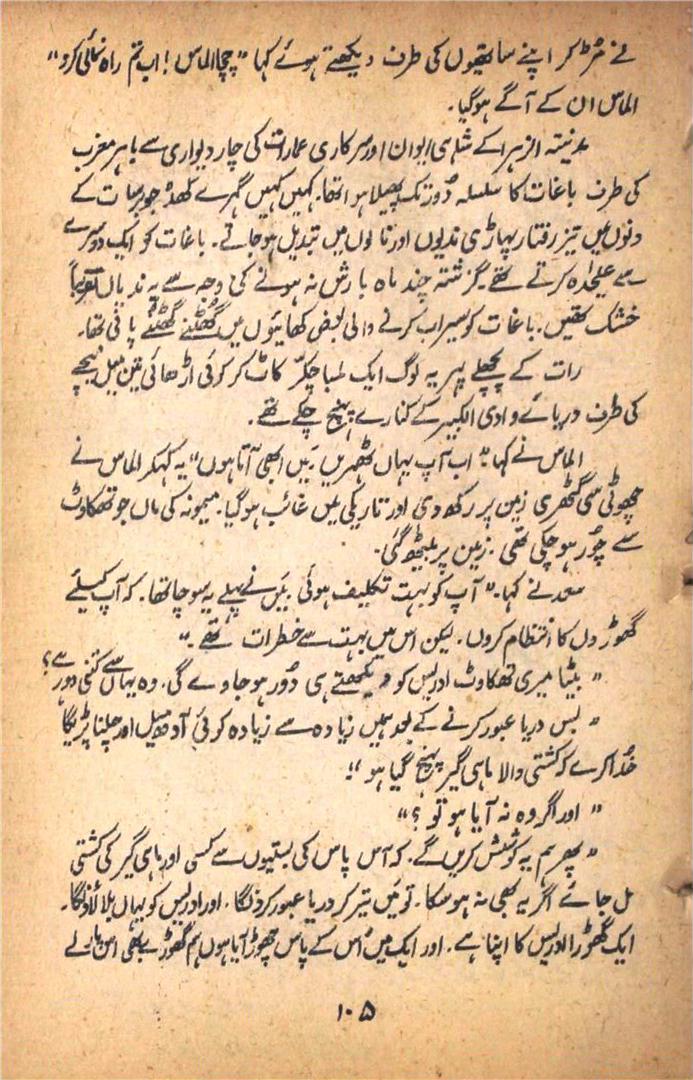 نے مڑ کر اپنے ساتھیوں کی طرف دیکھتے ہوئے کہا "چچا الماس! اب تم راہ نمائی کرو"
الماس ان کے آگے ہو گیا۔
مدینتہ الزہرا کے شاہی ایوان اور سرکاری عمارات کی چار دیواری سے باہر مغرب
کی طرف باغات کا سلسلہ دُور تک پھیلا ہوا تھا۔ کہیں کہیں گہرے کھڈ جو برسات کے
دنوں میں تیز رفتار پہاڑی ندیوں اور نالوں میں تبدیل ہو جاتے۔ باغات کو ایک دوسرے
سے علیٰحدہ کرتے تھے گزشتہ چند ماہ بارش نہ ہونے کی وجہ سے یہ ندیاں تقریباً
خشک تھیں۔ باغات کو سیراب کرنے والی بعض کھائیوں میں گھٹنے گھٹنے پانی تھا۔
رات کے پچھلے پہر یہ لوگ ایک لمبا چکّر کاٹ کر کوئی اڑھائی تین میل نیچے
کی طرف دریائے وادی الکبیر کے کنارے پہنچ چکے تھے۔
الماس نے کہا" اب آپ یہاں ٹھہریں۔ میں ابھی آتا ہوں" یہ کہکر الماس نے
چھوٹی سی گٹھری زمین پر رکھ دی اور تاریکی میں غائب ہو گیا۔ میمونہ کی ماں جو تھکاوٹ
سے چُور ہو چکی تھی۔ زمین پر بیٹھ گئی۔
سعد نے کہا۔" آپ کو بہت تکلیف ہوئی۔ میں نے پہلے یہ سوچا تھا۔ کہ آپ کیلئے
گھوڑوں کا انتظام کروں۔ لیکن اس میں بہت سے خطرات تھے۔"
" بیٹا میری تھکاوٹ ادریس کو دیکھتے ہی دُور ہو جاوے گی۔ وہ یہاں سے کتنی دور ہے؟
" بس دریا عبور کرنے کے بعد ہمیں زیادہ سے زیادہ کوئی آدھ میل اور چلنا پڑیگا
خُدا کرے کہ کشتی والا ماہی گیر پہنچ گیا ہو"
" اور اگر وہ نہ آیا ہو تو؟"
" پھر ہم یہ کوشش کریں گے۔ کہ آس پاس کی بستیوں سے کسی اور ماہی گیر کی کشتی
مل جائے اگر یہ بھی نہ ہو سکا۔ تو میں تیر کر دریا عبور کرونگا۔ اور ادریس کو یہاں بلا لاؤنگا۔
ایک گھوڑا ادریس کا اپنا ہے۔ اور ایک میں اُس کے پاس چھوڑ آیا ہوں ہم گھوڑے بھی اس پار لے
۱۰۵